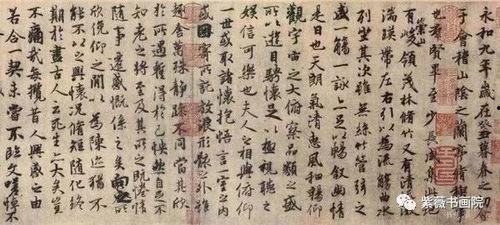 永和九年歲在癸丑暮春之初會
于會稽山陰之蘭亭脩稧事
也群賢畢至少長咸集此地
有崇山峻領茂林脩竹又有清流激
湍暎帶左右引以為流觴曲水
列坐其次雖無絲竹管弦之
盛一觴一詠亦足以暢叙幽情
是日也天朗氣清惠風和暢仰
觀宇宙之大俯察品類之盛
所以遊目騁懷足以極視聽之
娛信可樂也夫人之相與俯仰
一世或取諸懷抱悟言一室之內
或因寄所託放浪形骸之外雖
趣舍萬殊靜躁不同當其欣
於所遇蹔得於己怏然自足不
知老之將至及其所之既惓情
隨事遷感慨係之矣向之所
欣俛仰之間以為陳迹猶不
能不以之興懷況脩短隨化終
期於盡古人云死生亦大矣豈
不痛哉每攬昔人興感之由
若合一契未嘗不臨文嗟悼不
紫薇书画院